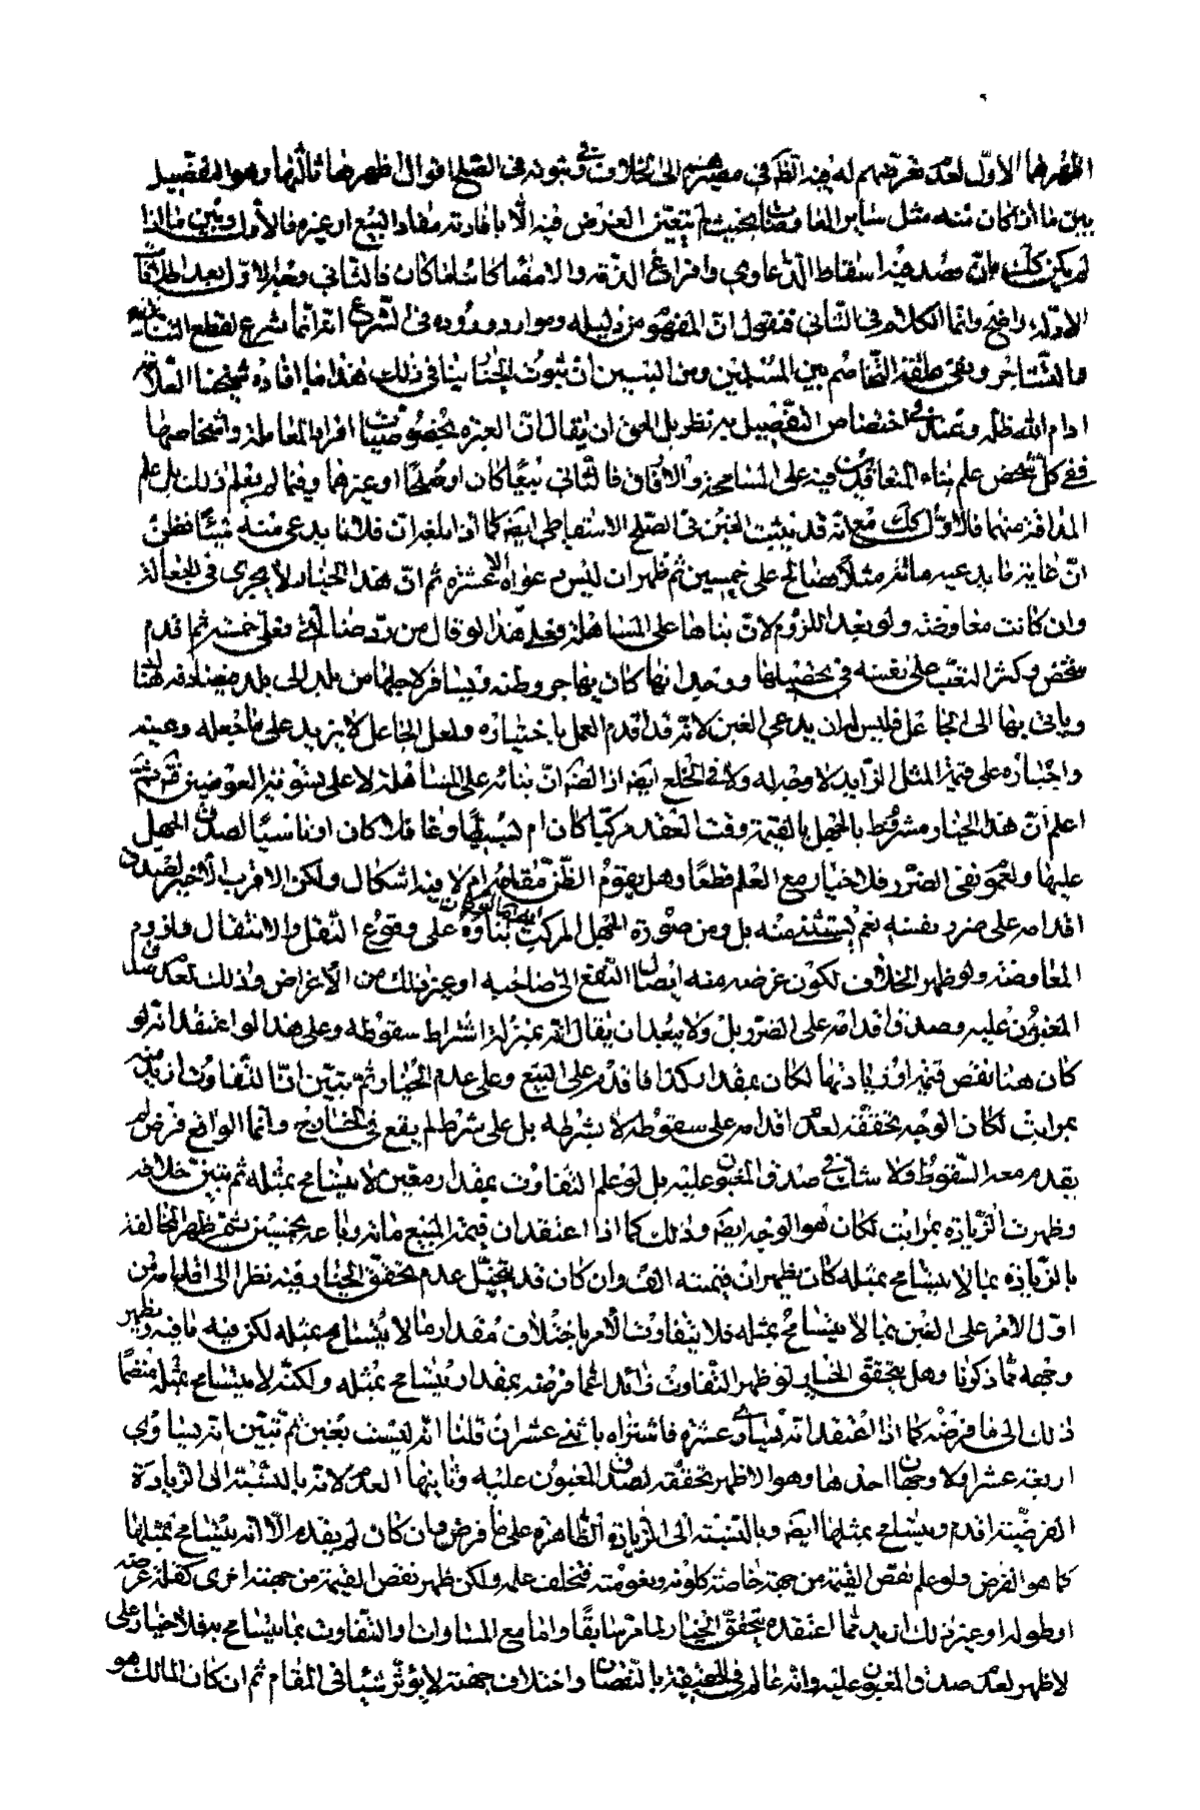 اظهرهما الاوّل لعدم تعرّضهم له فيه الظّ في مصيرهم الى الخلاف وفي ثبوته في الصّلح اقوال اظهرها ثالثها وهو التفصيل
بين ما اذا كان منه مثل ساير المعاوضات بحيث لم يتعيّن الغرض فيه الّا بافادته مفاد البيع او غيره فالأول وبين ما اذا
لم يكن كك بان قصد فيه اسقاط الدّعاوي وافراغ الذّمة والامضاء كائنا ما كان فالثّاني وخيرة الاوّل بعد اطلاقات
الادلة واضح وانما الكلام في الثّاني فنقول انّ المفهوم من دليله وموارد وروده في الشّرع انه انّما شرع لقطع التنازع
والتشاجر ونفى علقة التّخاصم بين المسلمين ومن البيّن ان ثبوت الخيار ينافي ذلك هذا ما افاده شيخنا العلامة
ادام الله ظلّه وعندي في اختصاص التفصيل به نظر بل الحق ان يقال انّ العبرة بخصوصيات افراد المعاملة واشخاصها
ففي كلّ شخص علم بناء المتعاقدين فيه على المسامحة والارفاق فالثّاني بيعًا كان او صُلحًا او غيرهما وفيما لم يعلم ذلك بل علم
المداقة منهما فالاوّل كك مع انّه قد يثبت الغبن في الصّلح الاسقاطي ايضا كما اذا بلغه ان فلانا يدعى منه شيئًا فظنّ
انّ غاية ما يدعيه مائة مثلًا فصالح على خمسين ثم ظهر ان ليس دعواه الا عشرة ثم انّ هذا الخيار لا يجرى في الجعالة
وان كانت معاوضة ولو بعد اللزوم لانّ بناها على المساهلة فعلى هذا لو قال من ردّ ضالتي فعلىّ خمسة ثم قدم
شخص وكثر التعب على نفسه في تحصيلها ووجدانها كان يهاجر وطنه ويسافر لاجلها من بلد الى بلد فيصادفه لهنا
وياتى بها الى الجاعل فليس له ان يدعى الغبن لانّه قد اقدم العمل باختياره ولعل الجاعل لا يزيد على ما جعله وعينه
واجباره على قيمة المثل الزّايد لا وجه له ولا في الخلع ايضا اذ الظّ انّ بنائه على المساهلة لا على تسوية العوضين ثمّ
اعلم انّ هذا الخيار مشروط بالجهل بالقيمة وقت العقد مركبّا كان ام بسيطًا وغافلا كان او ناسيًا لصدق الجهل
عليها ولعموم نفى الضّرر فلا خيار مع العلم قطعًا وهل يقوم الظّنّ مقامه ام لا فيه اشكال ولكن الاقرب الأخير لصدق
اقدامه على ضرر نفسه نعم يستثنى منه بل ومن صورة الجهل المركب بناؤه على وقوع النقل والانتقال ولزوم
المعاوضة ولو ظهر الخلاف لكون غرضه منه ايصال النفع الى صاحبه او غير ذلك من الأغراض وذلك لعدم صدق
المغبون عليه وصدق اقدامه على الضّرر بل ولا يبعد ان يقال انّه بمنزلة اشتراط سقوطه وعلى هذا لو اعتقد انه لو
كان هنا نقص قيمة او زيادتها لكان بمقدار كذا فاقدم على البيع وعلى عدم الخيار ثمّ تبيّن انّ التّفاوت ازيد منه
بمراتب لكان الوجه تحققه لعدم اقدامه على سقوطه لا بشرطه بل على شرط لم يقع في الخارج وانما الواقع فرض لم
يقدم معه السّقوط فلا شك في صدق المغبون عليه بل لو علم التفاوت بمقدار معيّن لا يتسامح بمثله ثم تبيّن خلافه
وظهرت الزّيادة بمراتب لكان هو الوجه ايضا وذلك كما اذا اعتقد ان قيمة المبيع مائة وباعه بخمسين ثمّ ظهر المخالفة
بالزّيادة بما لا يتسامح بمثله كان يظهر ان قيمته الف وان كان قد يتخيّل عدم تحقق الخيار فيه نظرا الى اقدامه من
اوّل الامر على الغبن بما لا يتسامح بمثله فلا يتفاوت الأمر باختلاف مقدار ما لا يتسامح بمثله لكن فيه ما فيه ويظهر
وجهه ممّا ذكرنا وهل يتحقق الخيار لو ظهر التّفاوت زائدا عمّا فرضه بمقدار يتسامح بمثله ولكنّه لا يتسامح بمثله منضمًّا
ذلك الى ما فرضه كما اذا اعتقد انّه يساوي عشرة فاشتراه باثنى عشر ان قلنا انّه ليس بغبن ثمّ تبيّن انّه يساوي
اربعة عشر او لا وجهان احدهما وهو الاظهر تحققه لصدق المغبون عليه وثانيهما العدم لانّه بالنّسبة الى الزّيادة
الفرضيّة اقدم ويتسامح بمثلها ايضا وبالنّسبة الى الزّيادة الظّاهرة على ما فرض وان كان لم يقدم الّا انه يتسامح بمثلها
كما هو الفرض ولو علم نقص القيمة من جهة خاصّة كلونه ونعومته فتخلف علمه ولكن ظهر نقص القيمة من جهته اخرى كقلة عرضه
او طوله او غير ذلك ازيد ممّا اعتقده يتحقّق الخيار لما مرّ سابقًا واما مع المساوات والتّفاوت بما يتسامح به فلا خيار على
لاظهر لعدم صدق المغبون عليه وانه عالم في الحقيقة بالنّقصان واختلاف جهته لا يؤثّر شيئا في المقام ثم ان كان المالك هو